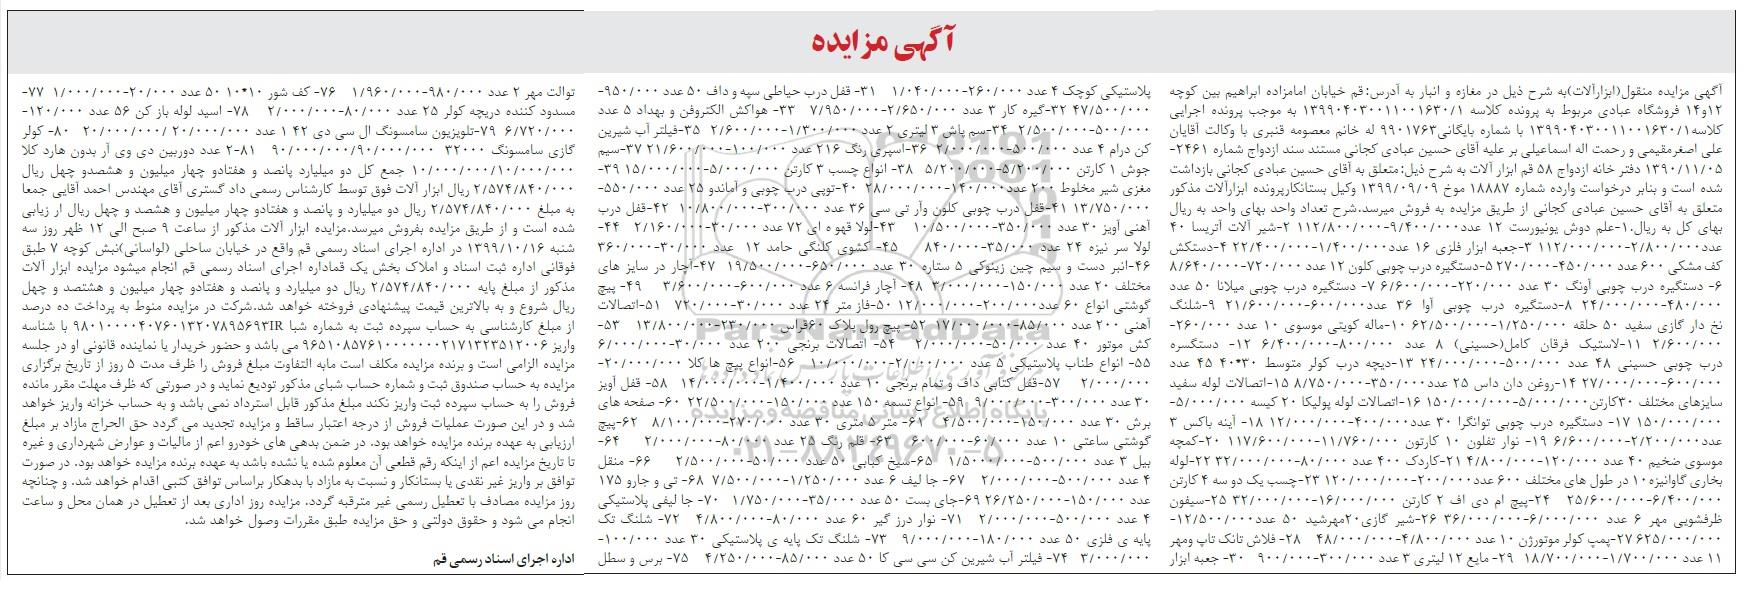 آگهی مزایده
آگهی مزایده منقول(ابزارآلات)به شرح ذیل در مغازه و انبار به آدرس:قم خیابان امامزاده ابراهیم بین کوچه
۱۲و۱۴ فروشگاه عبادی مربوط به پرونده کلاسه ۱۳۹۹۰۴۰۳۰۰۱۱۰۰۱۶۳۰/۱ به موجب پرونده اجرایی
کلاسه۱۳۹۹۰۴۰۳۰۰۱۱۰۰۱۶۳۰/۱ با شماره بایگانی۹۹۰۱۷۶۳ له خانم معصومه قنبری با وکالت آقایان
علی اصغرمقیمی و رحمت اله اسماعیلی بر علیه آقای حسین عبادی کجانی مستند سند ازدواج شماره ۲۴۶۱-
۱۳۹۰/۱۱/۰۵ دفتر خانه ازدواج ۵۸ قم ابزار آلات به شرح ذیل:متعلق به آقای حسین عبادی کجانی بازداشت
شده است و بنابر درخواست وارده شماره ۱۸۸۸۷ موخ ۱۳۹۹/۰۹/۰۹ وکیل بستانکارپرونده ابزارآلات مذکور
متعلق به آقای حسین عبادی کجانی از طریق مزایده به فروش میرسد.شرح تعداد واحد بهای واحد به ریال
بهای کل به ریال.۱-علم دوش یونیورست ۱۲ عدد۹/۴۰۰/۰۰۰-۱۱۲/۸۰۰/۰۰۰ ۲-شیر آلات آتریسا ۴۰
عدد۲/۸۰۰/۰۰۰-۱۱۲/۰۰۰/۰۰۰ ۳-جعبه ابزار فلزی ۱۶ عدد۱/۴۰۰/۰۰۰-۲۲/۴۰۰/۰۰۰ ۴-دستکش
کف مشکی ۶۰۰ عدد ۴۵۰/۰۰۰-۲۷۰/۰۰۰ ۵-دستگیره درب چوبی کلون ۱۲ عدد ۷۲۰/۰۰۰-۸/۶۴۰/۰۰۰
۶- دستگیره درب چوبی آونگ ۳۰ عدد ۲۲۰/۰۰۰-۶/۶۰۰/۰۰۰ ۷- دستگیره درب چوبی میلانا ۵۰ عدد
۴۸۰/۰۰۰-۲۴/۰۰۰/۰۰۰ ۸-دستگیره درب چوبی آوا ۳۶ عدد۶۰۰/۰۰۰-۲۱/۶۰۰/۰۰۰ ۹-شلنگ
نخ دار گازی سفید ۵۰ حلقه ۱/۲۵۰/۰۰۰-۶۲/۵۰۰/۰۰۰ ۱۰-ماله کویتی موسوی ۱۰ عدد ۲۶۰/۰۰۰-
۲/۶۰۰/۰۰۰ ۱۱-لاستیک فرقان کامل(حسینی) ۸ عدد ۸۰۰/۰۰۰-۶/۴۰۰/۰۰۰ ۱۲- دستگسره
درب چوبی حسینی ۴۸ عدد ۵۰۰/۰۰۰-۲۴/۰۰۰/۰۰۰ ۱۳-دیچه درب کولر متوسط ۳۰*۴۰ ۴۵ عدد
۶۰۰/۰۰۰-۲۷/۰۰۰/۰۰۰ ۱۴-روغن دان داس ۲۵ عدد۳۵۰/۰۰۰-۸/۷۵۰/۰۰۰ ۱۵-اتصالات لوله سفید
سایزهای مختلف ۳۰کارتن۵/۰۰۰/۰۰۰-۱۵۰/۰۰۰/۰۰۰ ۱۶-اتصالات لوله پولیکا ۲۰ کیسه ۵/۰۰۰/۰۰۰-
۱۵۰/۰۰۰/۰۰۰ ۱۷- دستگیره درب چوبی توانگرا ۳۰ عدد۴۰۰/۰۰۰-۱۲/۰۰۰/۰۰۰ ۱۸- آینه باکس ۳
عدد۲/۲۰۰/۰۰۰-۶/۶۰۰/۰۰۰ ۱۹- نوار تفلون ۱۰ کارتن ۱۱/۷۶۰/۰۰۰-۱۱۷/۶۰۰/۰۰۰ ۲۰-کمچه
موسوی ضخیم ۴۰ عدد ۱۲۰/۰۰۰-۴/۸۰۰/۰۰۰ ۲۱-کاردک ۴۰۰ عدد ۸۰/۰۰۰-۳۲/۰۰۰/۰۰۰ ۲۲-لوله
بخاری گاوانیزه۱۰ در طول های مختلف ۶۰۰ عدد۲۰۰/۰۰۰-۱۲۰/۰۰۰/۰۰۰ ۲۳-چسب یک دو سه ۴ کارتن
۶/۴۰۰/۰۰۰-۲۵/۶۰۰/۰۰۰ ۲۴-پیچ ام دی اف ۲ کارتن ۱۶/۰۰۰/۰۰۰-۳۲/۰۰۰/۰۰۰ ۲۵-سیفون
ظرفشویی مهر ۶ عدد ۶/۰۰۰/۰۰۰-۳۶/۰۰۰/۰۰۰ ۲۶-شیر گازی۲۰مهرشید ۵۰ عدد۱۲/۵۰۰/۰۰۰-
۶۲۵/۰۰۰/۰۰۰ ۲۷-پمپ کولر موتورژن ۱۰ عدد ۴/۸۰۰/۰۰۰-۴۸/۰۰۰/۰۰۰ ۲۸- فلاش تانک تاپ ومهر
۱۱ عدد ۱/۷۰۰/۰۰۰-۱۸/۷۰۰/۰۰۰ ۲۹- مایع ۱۲ لیتری ۳ عدد ۳۰۰/۰۰۰-۹۰۰/۰۰۰ ۳۰- جعبه ابزار
پلاستیکی کوچک ۴ عدد ۲۶۰/۰۰۰-۱/۰۴۰/۰۰۰ ۳۱- قفل درب حیاطی سپه و داف ۵۰ عدد ۹۵۰/۰۰۰-
۴۷/۵۰۰/۰۰۰ ۳۲-گیره کار ۳ عدد ۲/۶۵۰/۰۰۰-۷/۹۵۰/۰۰۰ ۳۳- هواکش الکتروفن و بهداد ۵ عدد
۵۰۰/۰۰۰-۲/۵۰۰/۰۰۰ ۳۴-سم پاش ۳ لیتری ۲ عدد ۱/۳۰۰/۰۰۰-۲/۶۰۰/۰۰۰ ۳۵-فیلتر آب شیرین
کن درام ۴ عدد ۵۰۰/۰۰۰-۲/۰۰۰/۰۰۰ ۳۶-اسپری رنگ ۲۱۶ عدد ۱۰۰/۰۰۰-۲۱/۶۰۰/۰۰۰ ۳۷-سیم
جوش ۱ کارتن ۵/۲۰۰/۰۰۰-۵/۲۰۰/۰۰۰ ۳۸- انواع چسب ۳ کارتن ۵/۰۰۰/۰۰۰-۱۵/۰۰۰/۰۰۰ ۳۹-
مغزی شیر مخلوط ۲۰۰ عدد ۱۴۰/۰۰۰-۲۸/۰۰۰/۰۰۰ ۴۰-توپی درب چوبی و آماندو ۲۵ عدد ۵۵۰/۰۰۰-
۱۳/۷۵۰/۰۰۰ ۴۱-قفل درب چوبی کلون وآر تی سی ۳۶ عدد ۳۰۰/۰۰۰-۱۰/۸۰۰/۰۰۰ ۴۲-قفل درب
آهنی آویز ۳۰ عدد ۳۵۰/۰۰۰-۱۰/۵۰۰/۰۰۰ ۴۳-لولا قهوه ای ۷۲ عدد ۳۰/۰۰۰-۲/۱۶۰/۰۰۰ ۴۴-
لولا سر نیزه ۲۴ عدد ۳۵/۰۰۰-۸۴۰/۰۰۰ ۴۵- کشوی کلنگی حامد ۱۲ عدد ۳۰/۰۰۰-۳۶۰/۰۰۰
۴۶-انبر دست و سیم چین زینوکی ۵ ستاره ۳۰ عدد ۶۵۰/۰۰۰-۱۹/۵۰۰/۰۰۰ ۴۷-آچار در سایز های
مختلف ۲۰ عدد ۱۵۰/۰۰۰-۳/۰۰۰/۰۰۰ ۴۸- آچار فرانسه ۶ عدد۶۰۰/۰۰۰-۳/۶۰۰/۰۰۰ ۴۹- پیچ
گوشتی انواع ۶۰ عدد ۲۰۰/۰۰۰-۱۲/۰۰۰/۰۰۰ ۵۰-فاز متر ۲۴ عدد ۳۰/۰۰۰-۷۲۰/۰۰۰ ۵۱-اتصالات
آهنی ۲۰۰ عدد ۸۵/۰۰۰-۱۷/۰۰۰/۰۰۰ ۵۲- پیچ رول پلاک ۶۰قراس ۲۳۰/۰۰۰-۱۳/۸۰۰/۰۰۰ ۵۳-
کش موتور ۴۰ عدد ۵۰/۰۰۰-۲/۰۰۰/۰۰۰ ۵۴- اتصالات برنجی ۲۰۰ عدد ۳۰/۰۰۰-۶/۰۰۰/۰۰۰
۵۵- انواع طناب پلاستیکی ۵ عدد ۲/۰۰۰/۰۰۰-۱۰/۰۰۰/۰۰۰ ۵۶-انواع پیچ ها کلا ۲۰/۰۰۰/۰۰۰-
۲/۰۰۰/۰۰۰ ۵۷-قفل کتابی داف و تمام برنجی ۱۰ عدد ۱/۴۰۰/۰۰۰-۱۴/۰۰۰/۰۰۰ ۵۸- قفل آویز
۳۰ عدد ۳۰۰/۰۰۰-۹/۰۰۰/۰۰۰ ۵۹- انواع تسمه ۱۵۰ عدد ۱۵۰/۰۰۰-۲۲/۵۰۰/۰۰۰ ۶۰- صفحه های
برش ۳۰ عدد ۱۵۰/۰۰۰-۴/۵۰۰/۰۰۰ ۶۱- متر ۵ متری ۳۰ عدد ۲۷۰/۰۰۰-۸/۱۰۰/۰۰۰ ۶۲-پیچ
گوشتی ساعتی ۱۰ عدد ۶۰/۰۰۰-۶۰۰/۰۰۰ ۶۳- قلم رنگ ۲۵ عدد ۸۰/۰۰۰-۲/۰۰۰/۰۰۰ ۶۴-
بیل ۳ عدد ۵۰۰/۰۰۰-۱/۵۰۰/۰۰۰ ۶۵-سیخ کبابی ۵۰ عدد ۵۰/۰۰۰-۲/۵۰۰/۰۰۰ ۶۶- منقل
۴ عدد ۵۰۰/۰۰۰-۲/۰۰۰/۰۰۰ ۶۷- جا لیف ۶ عدد ۱/۲۵۰/۰۰۰-۷/۵۰۰/۰۰۰ ۶۸- تی و جارو ۱۷۵
عدد ۱۵۰/۰۰۰-۲۶/۲۵۰/۰۰۰ ۶۹-جای بست ۵۰ عدد ۳۵/۰۰۰-۱/۷۵۰/۰۰۰ ۷۰- جا لیفی پلاستیکی
۴ عدد ۵۰۰/۰۰۰-۲/۰۰۰/۰۰۰ ۷۱- نوار درز گیر ۶۰ عدد ۸۰/۰۰۰-۴/۸۰۰/۰۰۰ ۷۲- شلنگ تک
پایه ی فلزی ۵۰ عدد ۱۸۰/۰۰۰-۹/۰۰۰/۰۰۰ ۷۳- شلنگ تک پایه ی پلاستیکی ۳۰ عدد ۱۰۰/۰۰۰-
۳/۰۰۰/۰۰۰ ۷۴- فیلتر آب شیرین کن سی سی کا ۵۰ عدد ۸۵/۰۰۰-۴/۲۵۰/۰۰۰ ۷۵- برس و سطل
توالت مهر ۲ عدد ۹۸۰/۰۰۰-۱/۹۶۰/۰۰۰ ۷۶- کف شور ۱۰*۱۰ ۵۰ عدد ۲۰/۰۰۰-۱/۰۰۰/۰۰۰ ۷۷-
مسدود کننده دریچه کولر ۲۵ عدد ۸۰/۰۰۰-۲/۰۰۰/۰۰۰ ۷۸- اسید لوله باز کن ۵۶ عدد ۱۲۰/۰۰۰-
۶/۷۲۰/۰۰۰ ۷۹-تلویزیون سامسونگ ال سی دی ۴۲ ۱ عدد ۲۰/۰۰۰/۰۰۰ /۲۰/۰۰۰/۰۰۰ ۸۰- کولر
گازی سامسونگ ۳۲۰۰۰ ۹۰/۰۰۰/۰۰۰/۹۰/۰۰۰/۰۰۰ ۸۱-۲ عدد دوربین دی وی آر بدون هارد کلا
۱۰/۰۰۰/۰۰۰/۱۰/۰۰۰/۰۰۰ جمع کل دو میلیارد پانصد و هفتادو چهار میلیون و هشصدو چهل ریال
۲/۵۷۴/۸۴۰/۰۰۰ ریال ابزار آلات فوق توسط کارشناس رسمی داد گستری آقای مهندس احمد آقایی جمعا
به مبلغ ۲/۵۷۴/۸۴۰/۰۰۰ ریال دو میلیارد و پانصد و هفتادو چهار میلیون و هشصد و چهل ریال ار زیابی
شده است و از طریق مزایده بفروش میرسد.مزایده ابزار آلات مذکور از ساعت ۹ صبح الی ۱۲ ظهر روز سه
شنبه ۱۳۹۹/۱۰/۱۶ در اداره اجرای اسناد رسمی قم واقع در خیابان ساحلی (لواسانی)نبش کوچه ۷ طبق
فوقانی اداره ثبت اسناد و املاک بخش یک قماداره اجرای اسناد رسمی قم انجام میشود مزایده ابزار آلات
مذکور از مبلغ پایه ۲/۵۷۴/۸۴۰/۰۰۰ ریال دو میلیارد و پانصد و هفتادو چهار میلیون و هشتصد و چهل
ریال شروع و به بالاترین قیمت پیشنهادی فروخته خواهد شد.شرکت در مزایده منوط به پرداخت ده درصد
از مبلغ کارشناسی به حساب سپرده ثبت به شماره شبا ۹۸۰۱۰۰۰۰۴۰۷۶۰۱۳۲۰۷۸۹۵۶۹۳IR با شناسه
واریز ۹۶۵۱۰۸۵۷۶۱۰۰۰۰۰۰۰۲۱۷۱۳۲۳۵۱۲۰۰۶ می باشد و حضور خریدار یا نماینده قانونی او در جلسه
مزایده الزامی است و برنده مزایده مکلف است مابه التفاوت مبلغ فروش را ظرف مدت ۵ روز از تاریخ برگزاری
مزایده به حساب صندوق ثبت و شماره حساب شبای مذکور تودیع نماید و در صورتی که ظرف مهلت مقرر مانده
فروش را به حساب سپرده ثبت واریز نکند مبلغ مذکور قابل استرداد نمی باشد و به حساب خزانه واریز خواهد
شد و در این صورت عملیات فروش از درجه اعتبار ساقط و مزایده تجدید می گردد حق الحراج مازاد بر مبلغ
ارزیابی به عهده برنده مزایده خواهد بود. در ضمن بدهی های خودرو اعم از مالیات و عوارض شهرداری و غیره
تا تاریخ مزایده اعم از اینکه رقم قطعی آن معلوم شده یا نشده باشد به عهده برنده مزایده خواهد بود. در صورت
توافق بر واریز غیر نقدی یا بستانکار و نسبت به مازاد با بدهکار براساس توافق کتبی اقدام خواهد شد. و چنانچه
روز مزایده مصادف با تعطیل رسمی غیر مترقبه گردد، مزایده روز اداری بعد از تعطیل در همان محل و ساعت
انجام می شود و حقوق دولتی و حق مزایده طبق مقررات وصول خواهد شد.
اداره اجرای اسناد رسمی قم
ParsNamadData
پایگاه اطلاع رسانی مناقصه و مزایده
۰۲۱-۸۸۳۴۹۶۷۰-۵